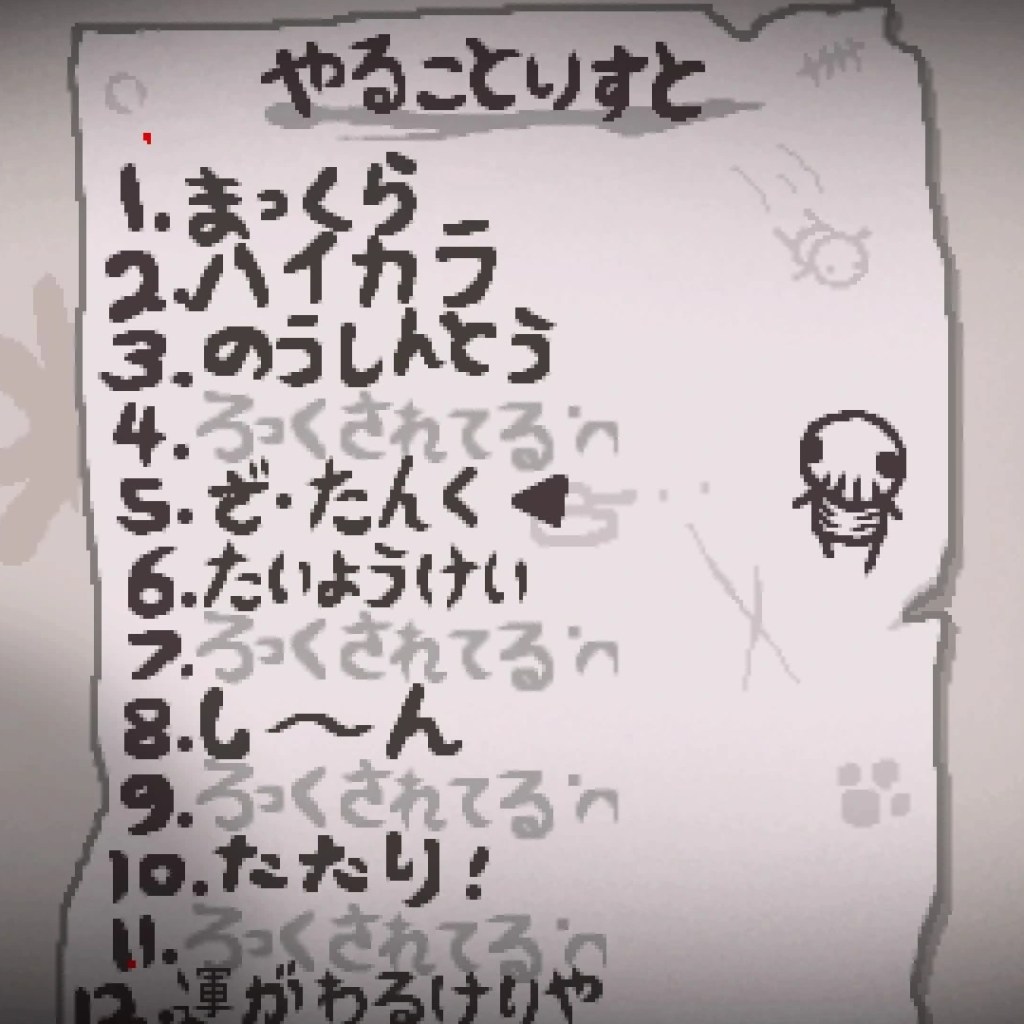 やることりすと
1. まっくら
2. ハイカラ
3. のうしんとう
4. ろっくされてる
5. ざ・たんく ◀
6. たいようけい
7. ろっくされてる
8. し〜ん
9. ろっくされてる
10. たたり!
11. ろっくされてる
12. 運がわるけりゃ